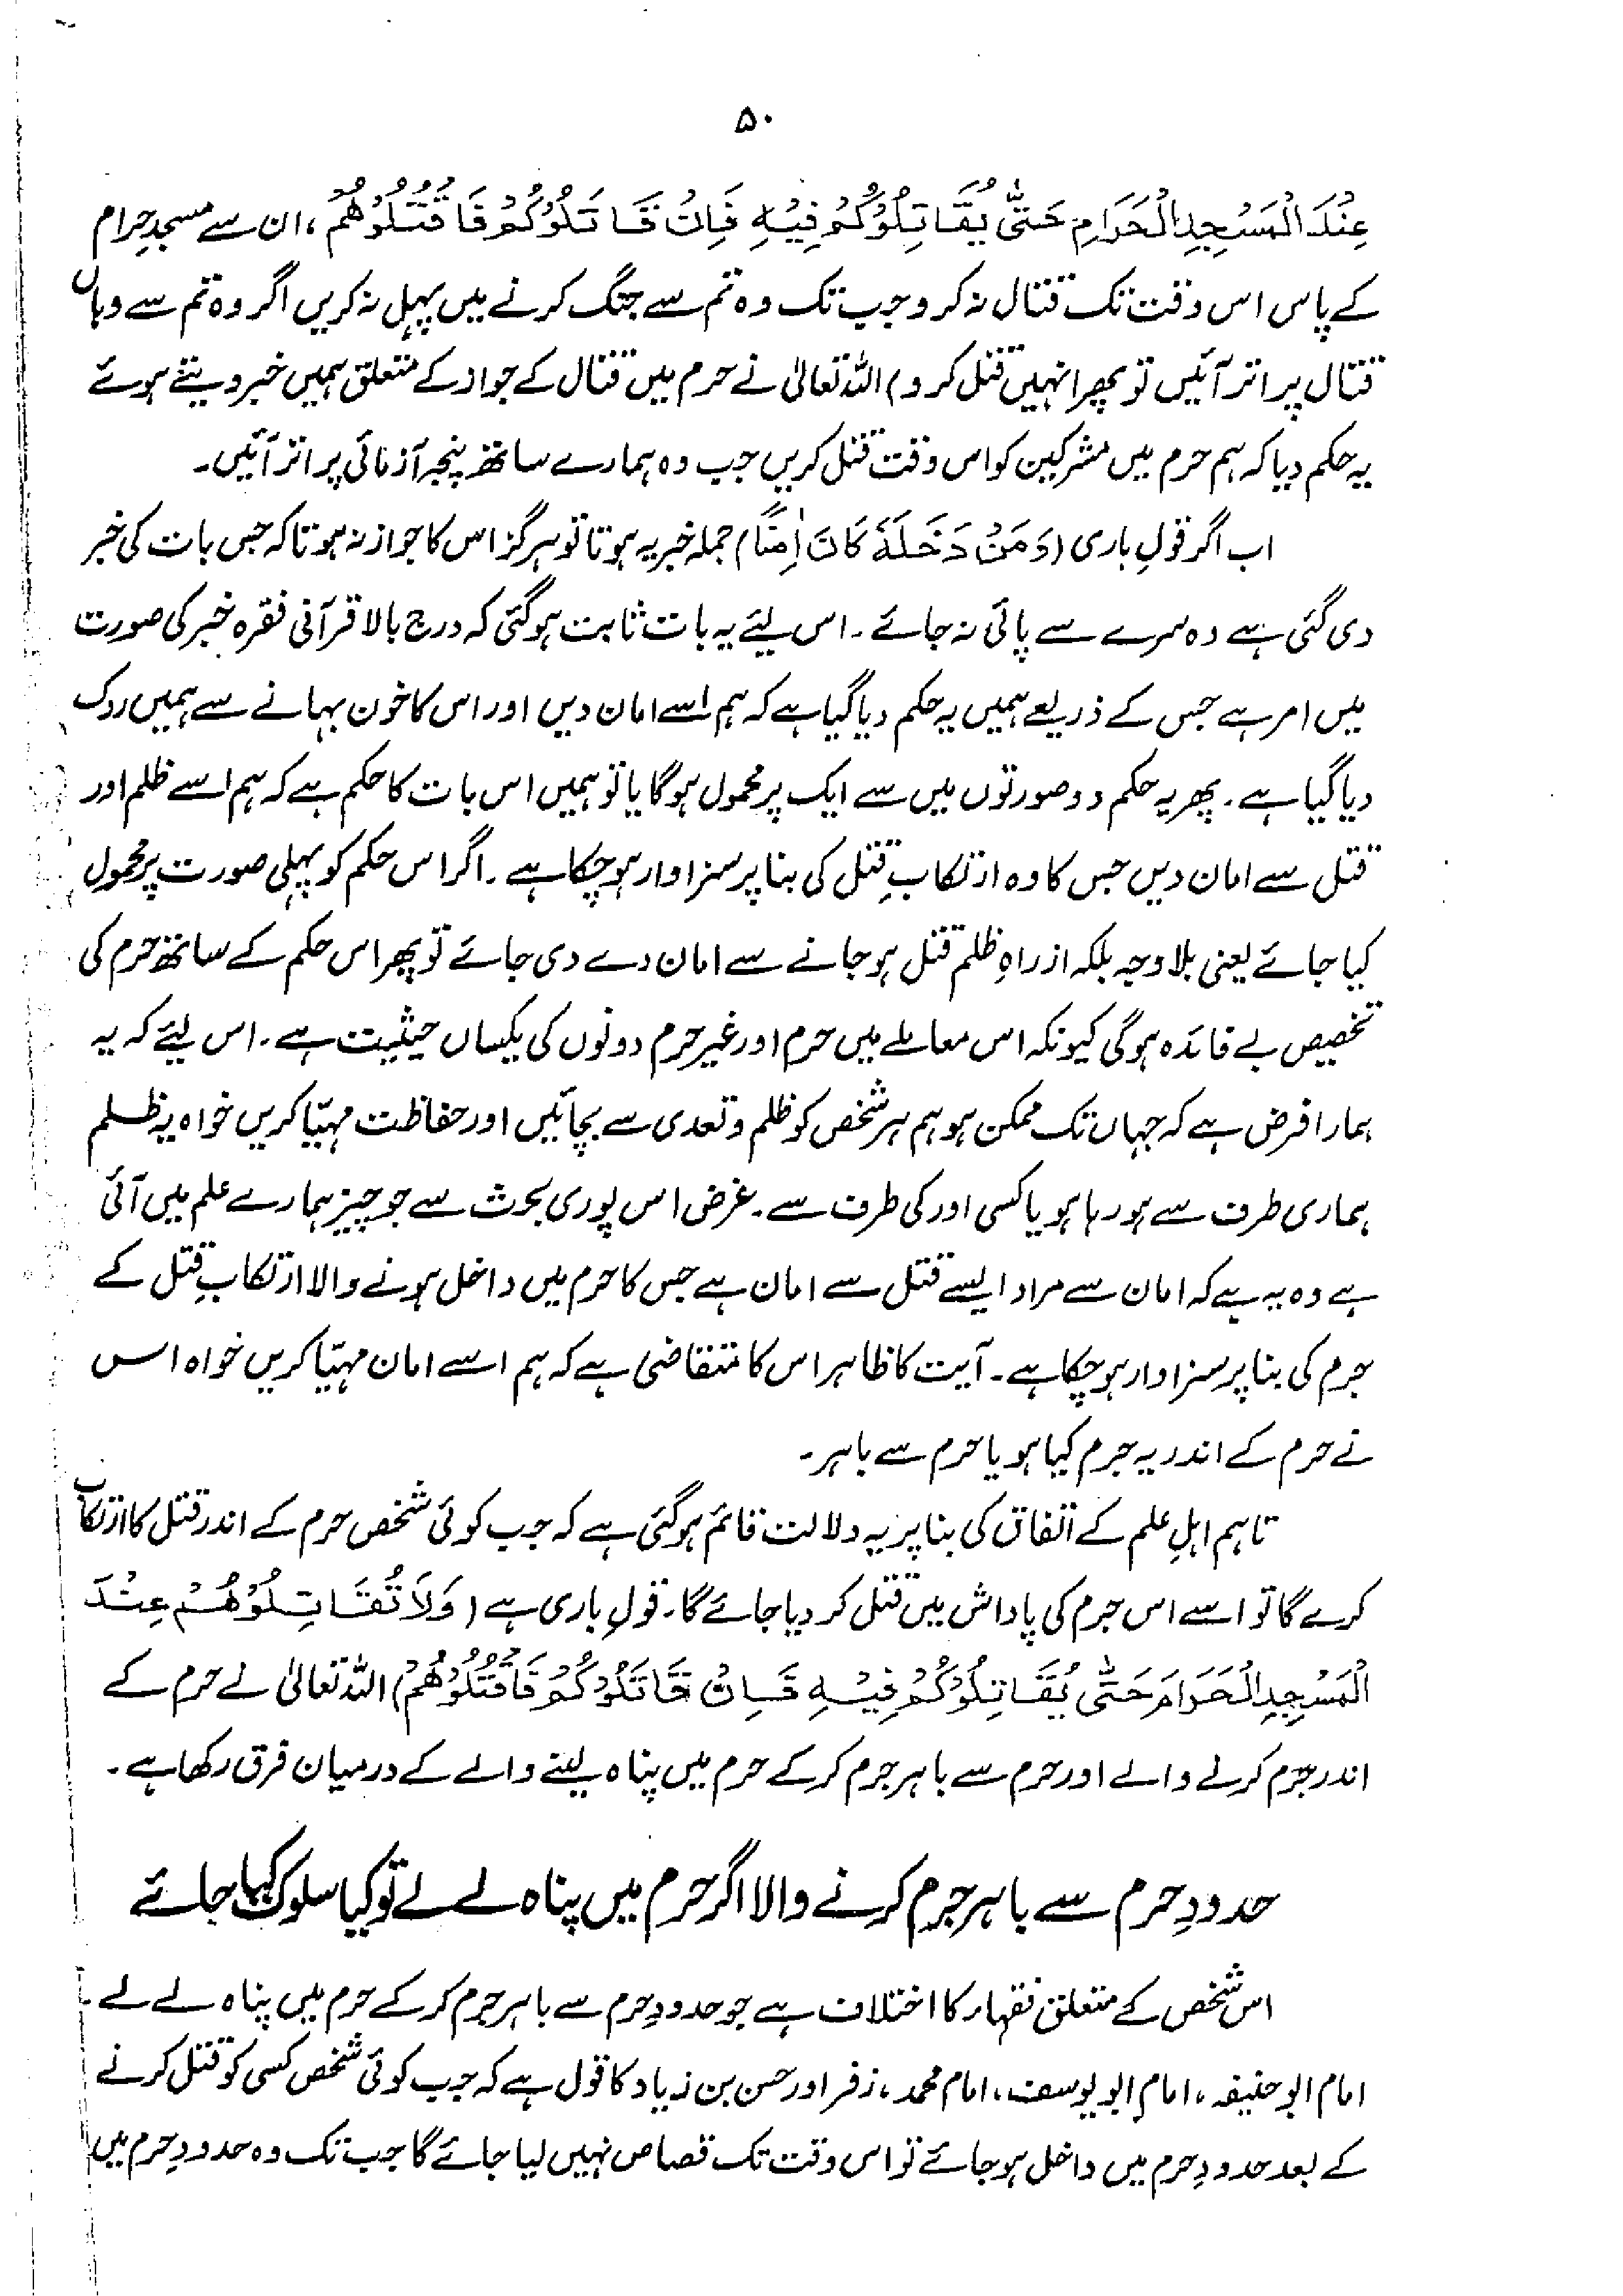 ۵۰
عِنْدَ الْمَسْجِدِ الْحَرَامِ حَتّٰى يُقَاتِلُوْكُمْ فِيْهِ فَاِنْ قَاتَلُوْكُمْ فَاقْتُلُوْهُمْ، ان سے مسجدِ حرام
کے پاس اس وقت تک قتال نہ کرو جب تک وہ تم سے جنگ کرنے میں پہل نہ کریں اگر وہ تم سے وہاں
قتال پر اتر آئیں تو پھر انہیں قتل کر دو) اللہ تعالیٰ نے حرم میں قتال کے جواز کے متعلق ہمیں خبر دیتے ہوئے
یہ حکم دیا کہ ہم حرم میں مشرکین کو اس وقت قتل کریں جب وہ ہمارے ساتھ پنجہ آزمائی پر اتر آئیں۔
اب اگر قولِ باری (وَمَنْ دَخَلَهٗ كَانَ اٰمِنًا) جملہ خبریہ ہوتا تو ہرگز اس کا جواز نہ ہوتا کہ جس بات کی خبر
دی گئی ہے وہ سرے سے پائی نہ جائے۔ اس لیئے یہ بات ثابت ہو گئی کہ درج بالا قرآنی فقرہ خبر کی صورت
میں امر ہے جس کے ذریعے ہمیں یہ حکم دیا گیا ہے کہ ہم اسے امان دیں اور اس کا خون بہانے سے ہمیں روک
دیا گیا ہے۔ پھر یہ حکم دو صورتوں میں سے ایک پر محمول ہوگا یا تو ہمیں اس بات کا حکم ہے کہ ہم اسے ظلم اور
قتل سے امان دیں جس کا وہ ارتکابِ قتل کی بنا پر سزاوار ہو چکا ہے۔ اگر اس حکم کو پہلی صورت پر محمول
کیا جائے یعنی بلاوجہ بلکہ ازراہِ ظلم قتل ہو جانے سے امان دے دی جائے تو پھر اس حکم کے ساتھ حرم کی
تخصیص بے فائدہ ہوگی کیونکہ اس معاملے میں حرم اور غیر حرم دونوں کی یکساں حیثیت ہے۔ اس لیئے کہ یہ
ہمارا فرض ہے کہ جہاں تک ممکن ہو ہم ہر شخص کو ظلم و تعدی سے بچائیں اور حفاظت مہیّا کریں خواہ یہ ظلم
ہماری طرف سے ہو رہا ہو یا کسی اور کی طرف سے۔ غرض اس پوری بحث سے جو چیز ہمارے علم میں آئی
ہے وہ یہ ہے کہ امان سے مراد ایسے قتل سے امان ہے جس کا حرم میں داخل ہونے والا ارتکابِ قتل کے
جرم کی بنا پر سزاوار ہو چکا ہے۔ آیت کا ظاہر اس کا متقاضی ہے کہ ہم اسے امان مہیّا کریں خواہ اس
نے حرم کے اندر یہ جرم کیا ہو یا حرم سے باہر۔
تاہم اہلِ علم کے اتفاق کی بنا پر یہ دلالت قائم ہو گئی ہے کہ جب کوئی شخص حرم کے اندر قتل کا ارتکاب
کرے گا تو اسے اس جرم کی پاداش میں قتل کر دیا جائے گا۔ قولِ باری ہے (وَلَا تُقَاتِلُوْهُمْ عِنْدَ
الْمَسْجِدِ الْحَرَامَ حَتّٰى يُقَاتِلُوْكُمْ فِيْهِ فَاِنْ قَاتَلُوْكُمْ فَاقْتُلُوْهُمْ) اللہ تعالیٰ نے حرم کے
اندر جرم کرنے والے اور حرم سے باہر جرم کر کے حرم میں پناہ لینے والے کے درمیان فرق رکھا ہے۔
حدودِ حرم سے باہر جرم کرنے والا اگر حرم میں پناہ لے لے تو کیا سلوک کیا جائے
اس شخص کے متعلق فقہاء کا اختلاف ہے جو حدودِ حرم سے باہر جرم کر کے حرم میں پناہ لے لے۔
امام ابو حنیفہ، امام ابو یوسف، امام محمد، زفر اور حسن بن زیاد کا قول ہے کہ جب کوئی شخص کسی کو قتل کرنے
کے بعد حدودِ حرم میں داخل ہو جائے تو اس وقت تک قصاص نہیں لیا جائے گا جب تک وہ حدودِ حرم میں